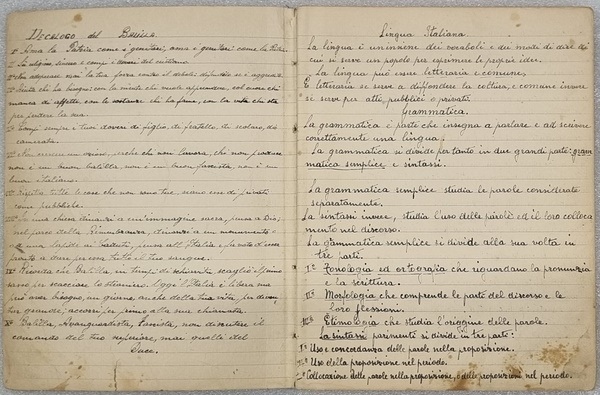 Decalogo del Balilla
I° Ama la Patria come i genitori, ama i genitori come la Patria.
non adoperare mai la tua forza contro il debole; difendilo se è aggredito.
Aiuta chi ha bisogno: con la mente chi vuole apprendere, col cuore chi
manca di affetti, con le sostanze chi ha fame, con la vita chi sta
per perdere la sua.
Compi sempre i tuoi doveri di figlio, di fratello, di scolaro, di
camerata.
Non essere un ozioso, chi non lavora, che non produce
non è un buon balilla, non è un buon fascista, non è un
buon italiano.
Rispetta tutte le cose che non sono tue, siano esse di privati
come pubbliche.
In una chiesa, dinanzi a un'immagine sacra, pensa a Dio;
nel parco della Rimembranza, dinanzi a un monumento o
a una lapide ai caduti, pensa all'Italia e
pronto a dare per essa tutto il tuo sangue.
Ricorda che Balilla, in tempi di schiavitù scagliò il primo
sasso per scacciare lo straniero. Oggi l'Italia è libera ma
può aver bisogno, un giorno anche della tua vita, per
accorri per primo alla sua chiamata.
X° Balilla, Avanguardista, Fascista, non discutere il
comando del tuo superiore, mai quello del
Duce.
Lingua Italiana
La lingua è un'insieme dei vocaboli e dei modi di dire di
cui si serve un popolo per esprimere le proprie idee.
La lingua può essere letteraria e comune,
È letteraria se serve a diffondere la coltura, e comune invece
se serve per atti, pubblici o privati.
Grammatica.
La grammatica è l'arte che insegna a parlare e ad scrivere
correttamente una lingua.
La grammatica si divide pertanto in due grandi parti: gram
matica semplice e sintassi.
La grammatica semplice studia le parole considerate
separatamente.
La sintassi invece, studia l'uso delle parole ed il loro colloca
mento nel discorso.
La gammatica semplice si divide alla sua volta in
tre parti.
I° Fonologia ed ortografia che riguardano la pronunzia
e la scrittura.
II° Morfologia che comprende le parti del discorso e le
loro flessioni.
III° Etimologia che studia l'origgine delle parole.
La sintassi parimenti si divide in tre parti:
I° Uso e concordanza delle parole nella proposizione.
II° Uso della proposizione nel periodo.
III° Collocazione delle parole nella proposizione, o delle proposizioni nel periodo.